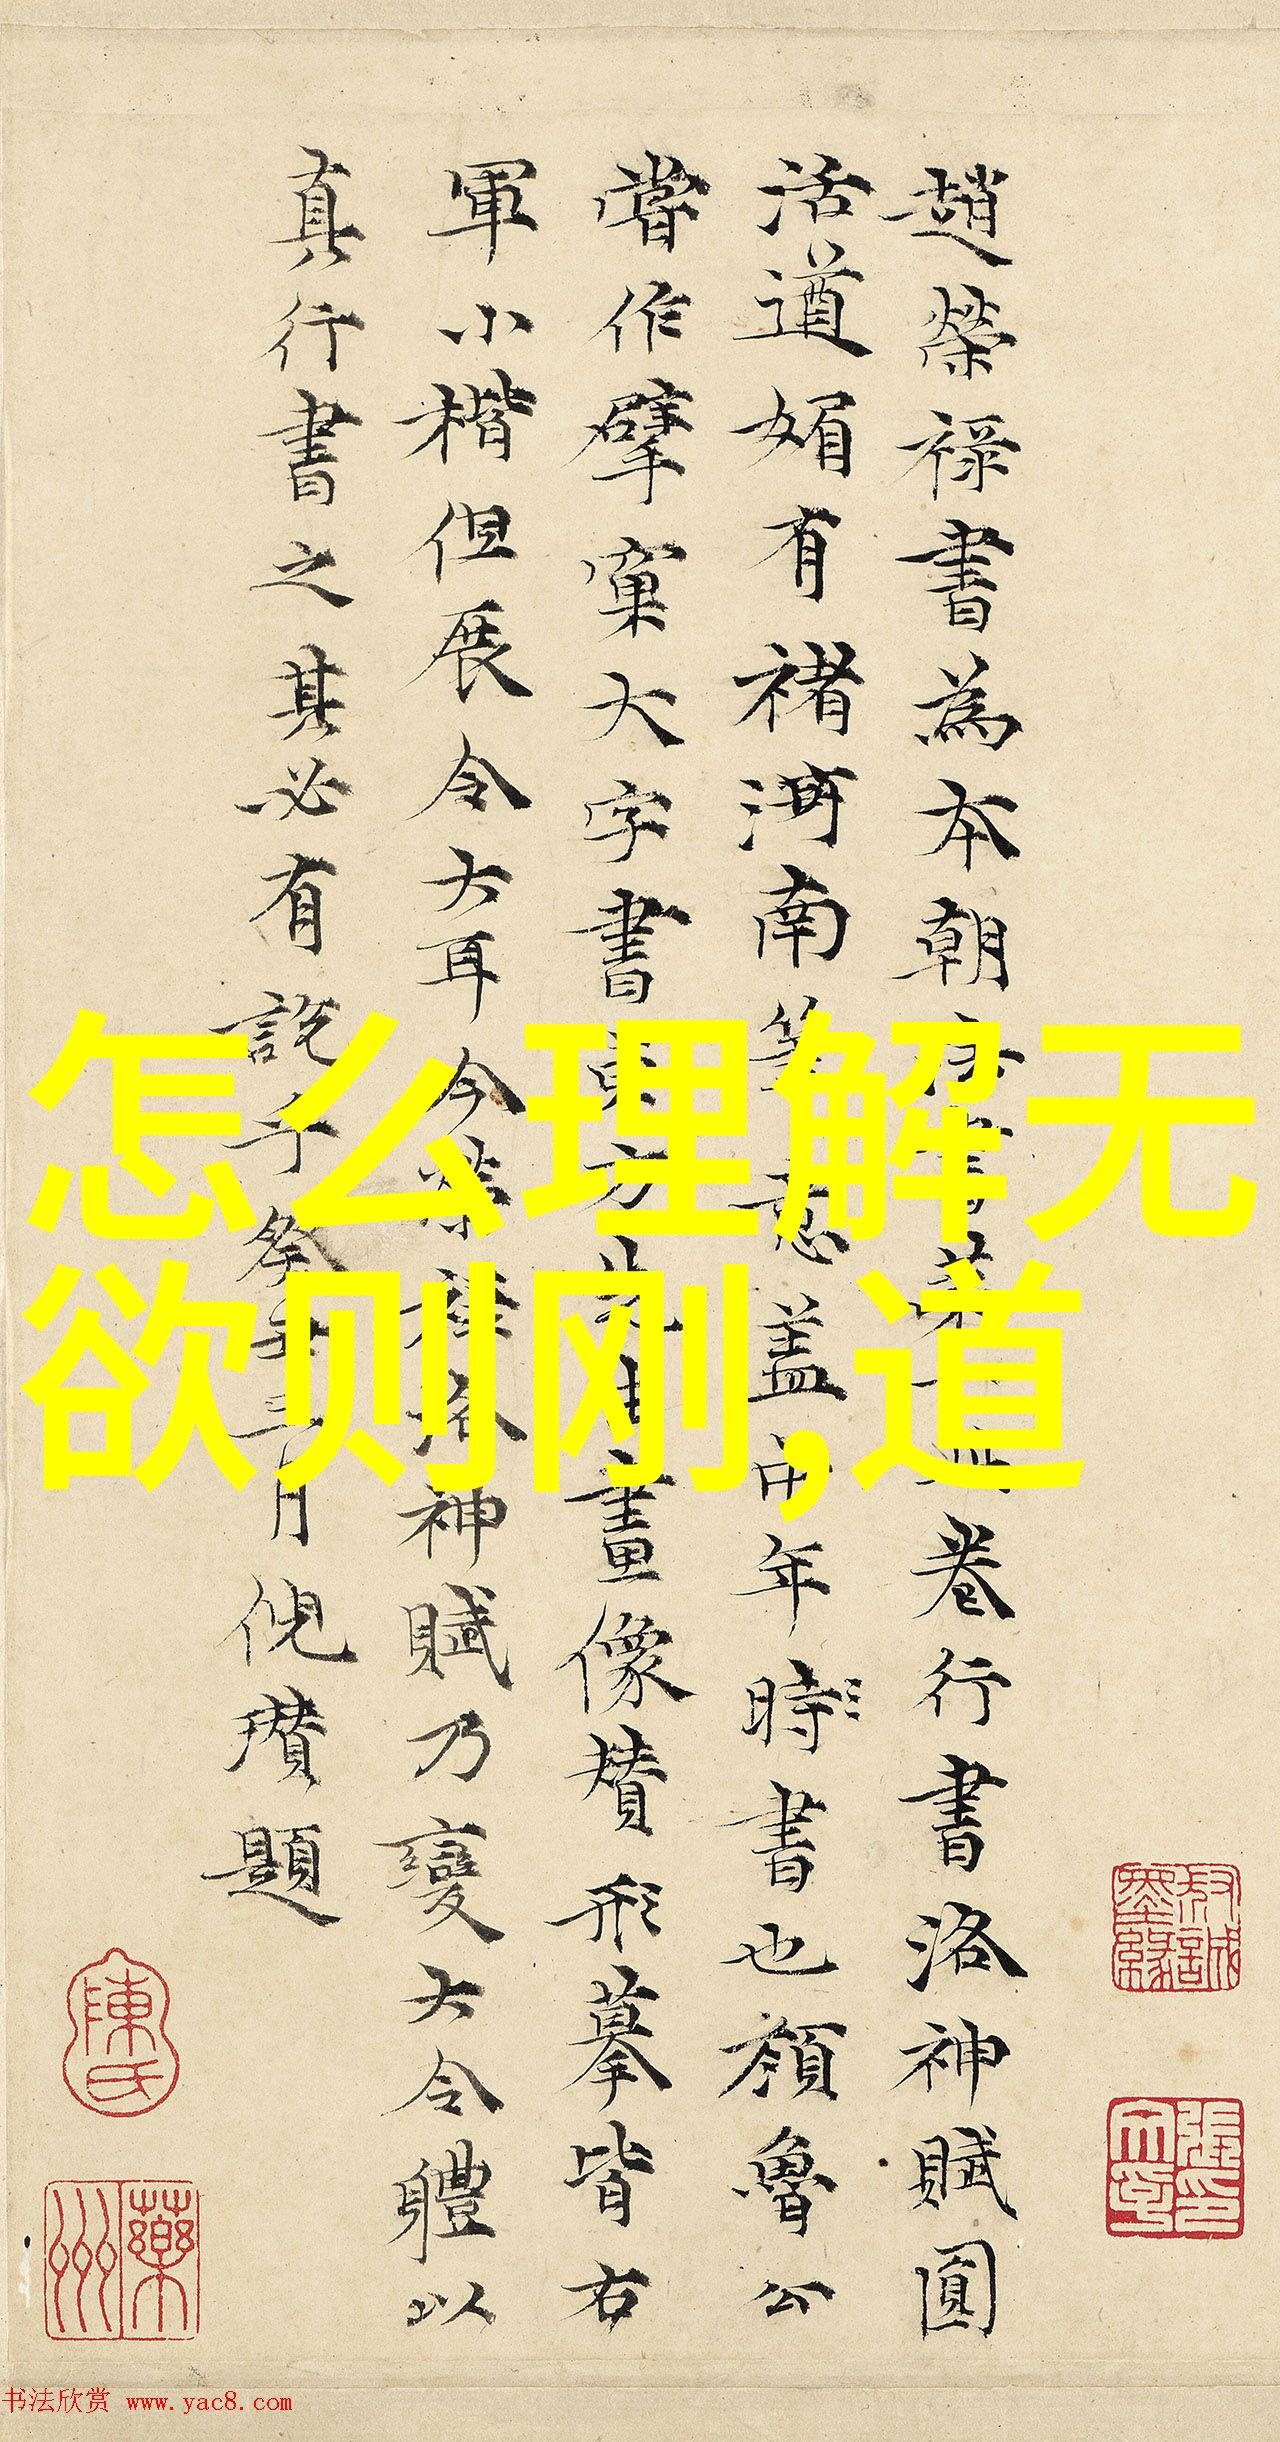 怎么理解无
欲则刚,道
趙榮祿書為本朝
卷行書洛神賦圓
活遒媚有褚河南筆意蓋中年時書也顏魯公
嘗作擘窠大字書東方先生畫像贊形摹皆右
軍小楷但展令大耳今
神賦乃變大令體以
真行書之其必有說乎
月倪瓚題
陳氏
藥洲
书法欣赏 www.yac8.com